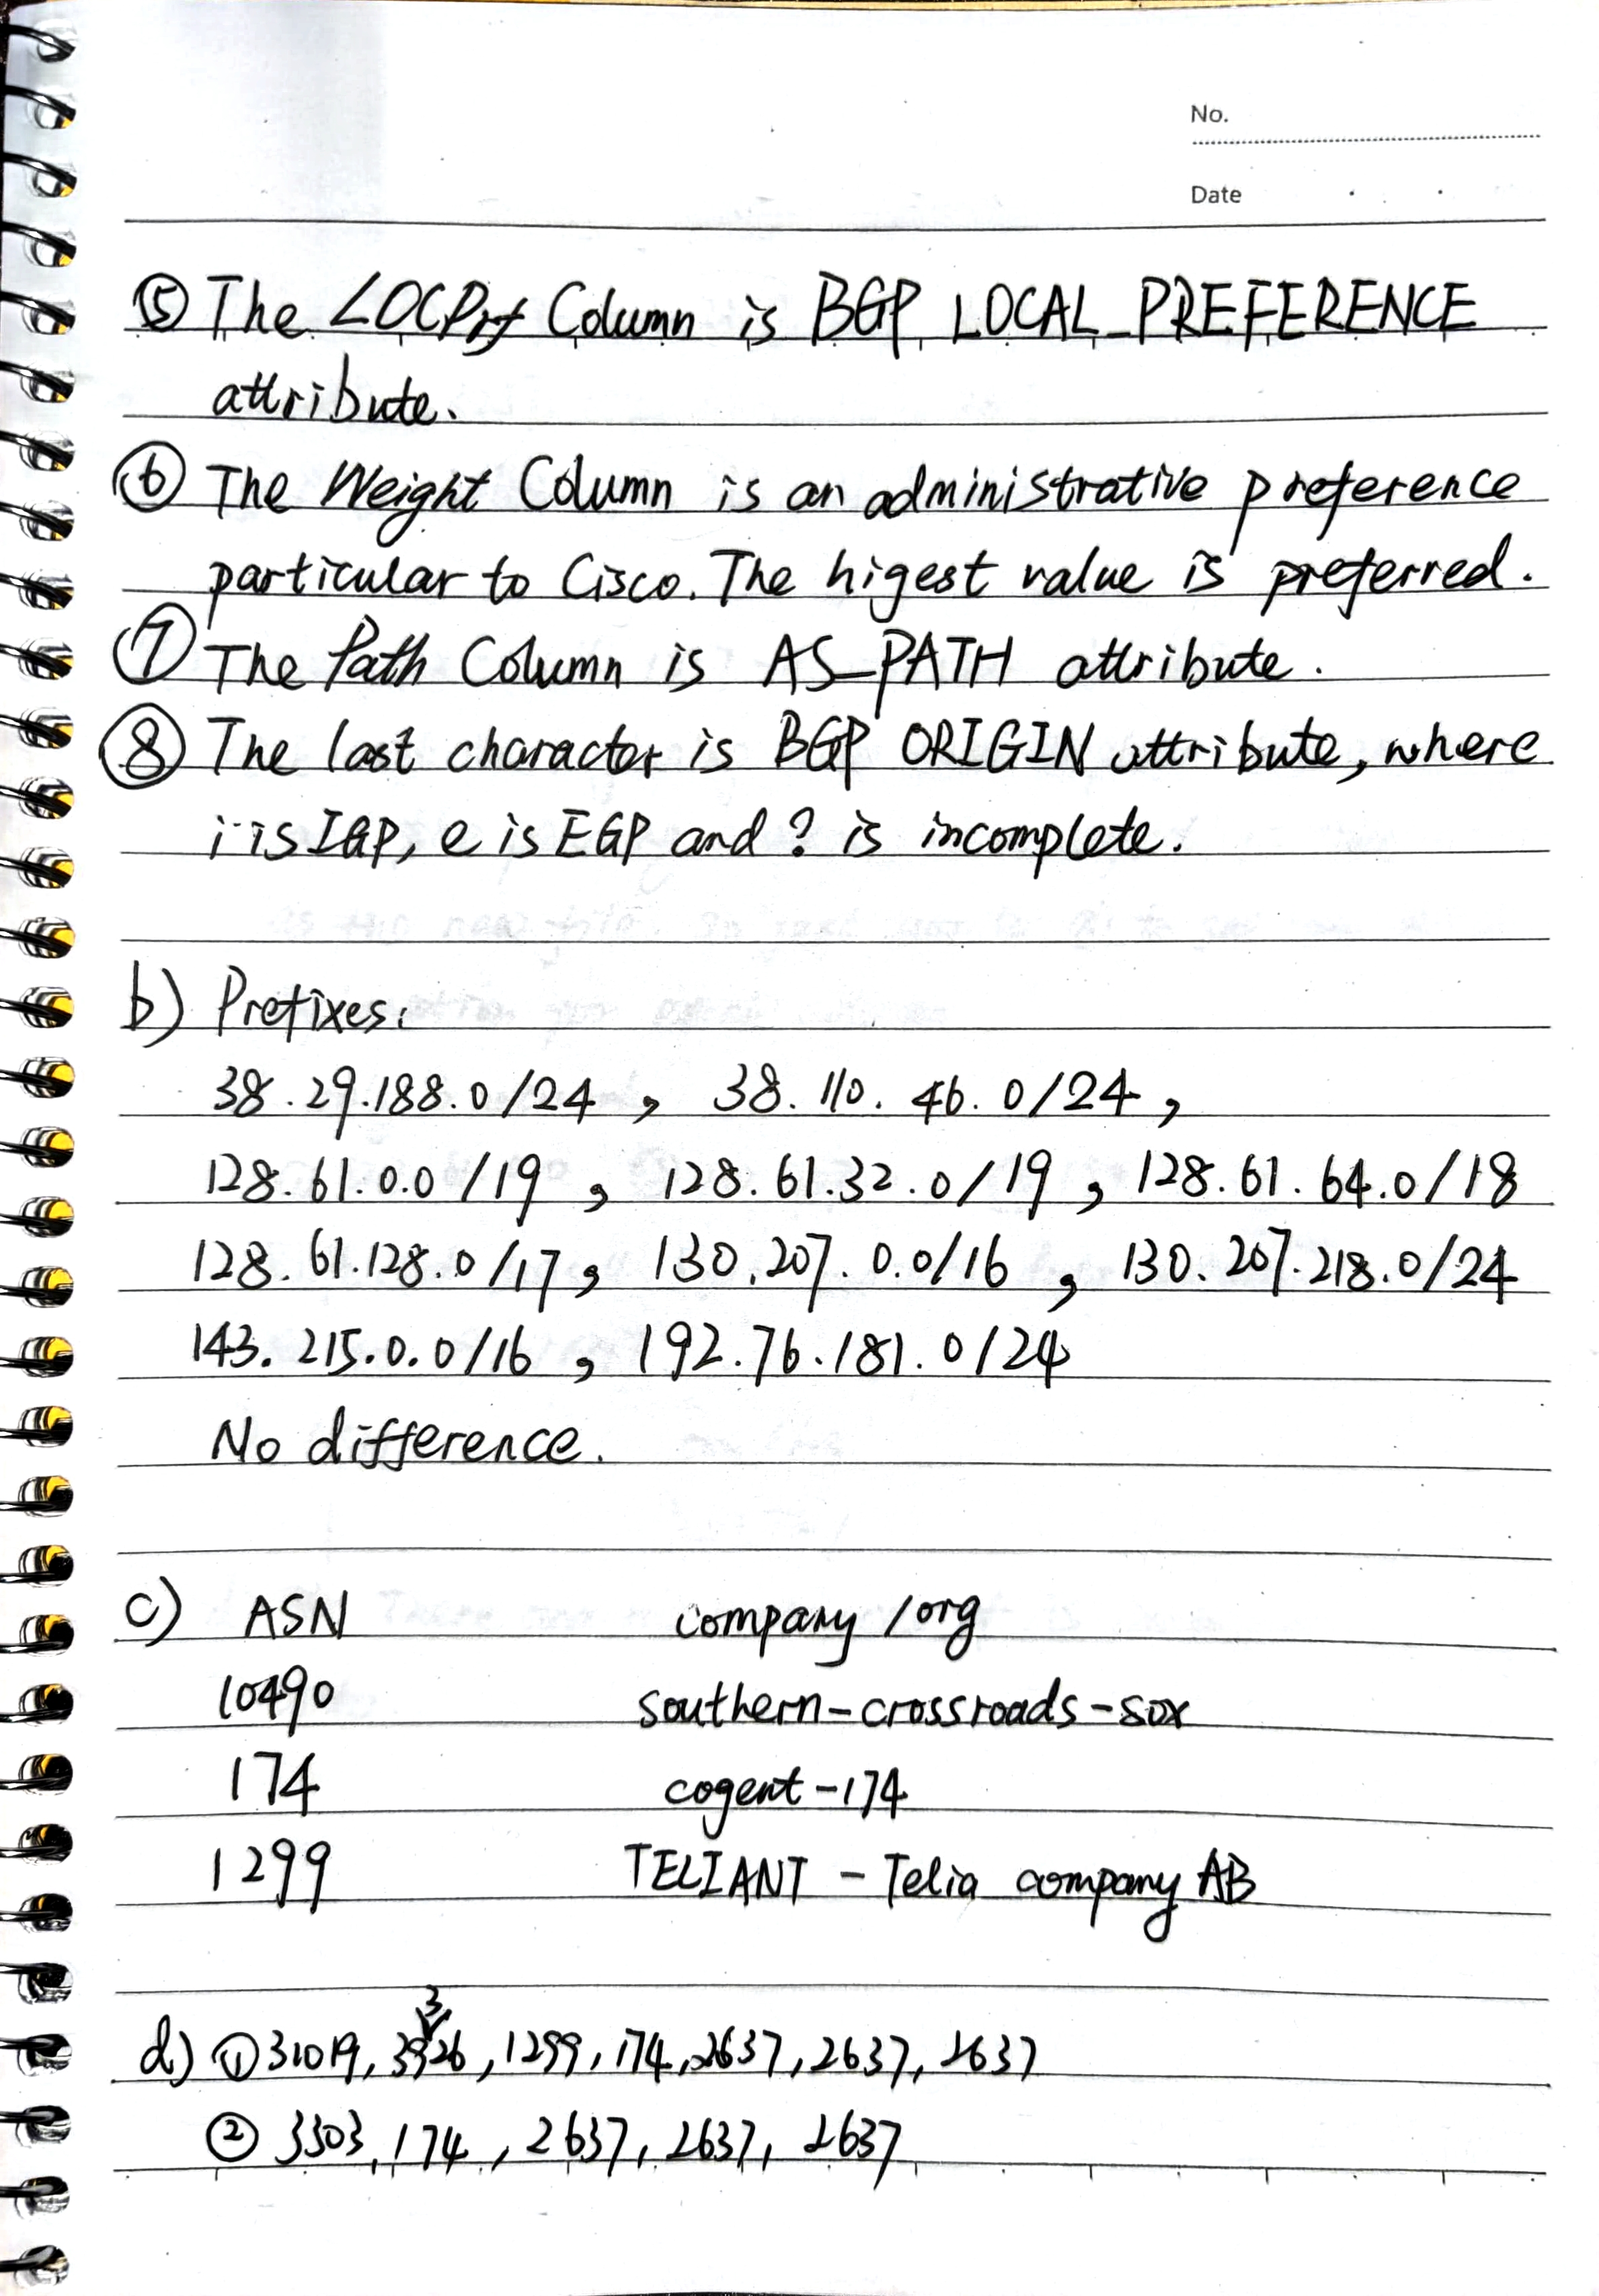 No.
Date
⑤ The LOCPrf Column is BGP LOCAL_PREFERENCE
attribute.
⑥ The Weight Column is an administrative preference
particular to Cisco. The higest value is preferred.
⑦ The Path Column is AS_PATH attribute.
⑧ The last character is BGP ORIGIN attribute, where
i is IGP, e is EGP and ? is incomplete.
b) Prefixes:
38.29.188.0/24, 38.110.46.0/24,
128.61.0.0/19, 128.61.32.0/19, 128.61.64.0/18
128.61.128.0/17, 130.207.0.0/16, 130.207.218.0/24
143.215.0.0/16, 192.76.181.0/24
No difference.
c) ASN company/org
10490 southern-crossroads-sox
174 cogent-174
1299 TELIANT - Telia company AB
3
d) ① 31019, 3926, 1299, 174, 2637, 2637, 2637
② 3303, 174, 2637, 2637, 2637